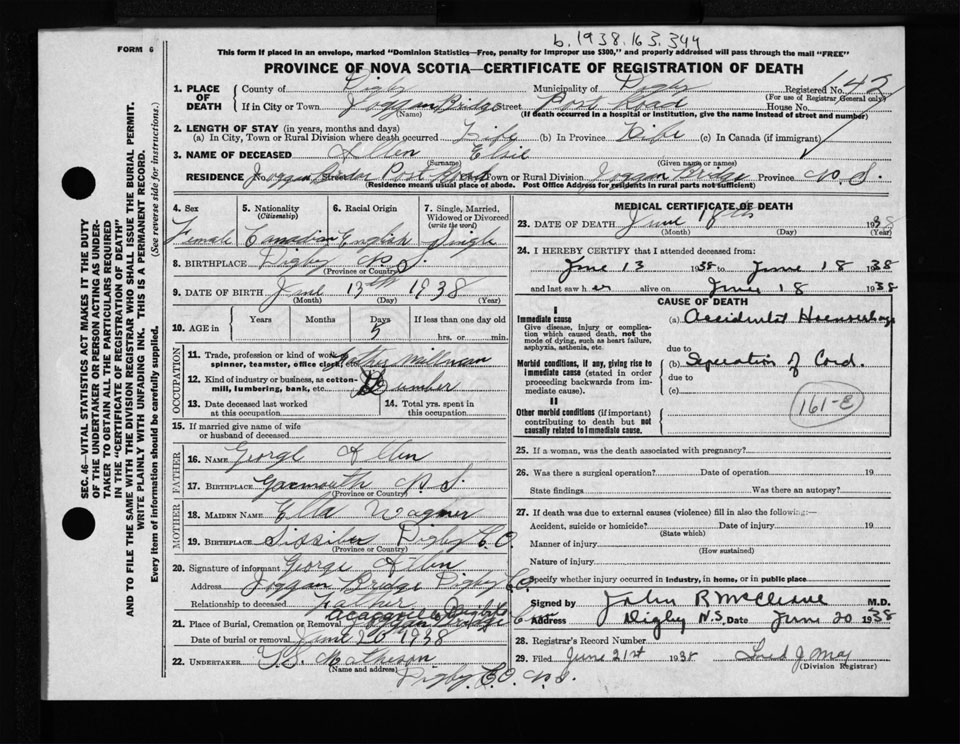 b.1938.163.344
FORM 6
This form if placed in an envelope, marked "Dominion Statistics—Free, penalty for improper use $300," and properly addressed will pass through the mail "FREE"
PROVINCE OF NOVA SCOTIA—CERTIFICATE OF REGISTRATION OF DEATH
SEC. 46—VITAL STATISTICS ACT MAKES IT THE DUTY
OF THE UNDERTAKER OR PERSON ACTING AS UNDER-
TAKER TO OBTAIN ALL THE PARTICULARS REQUIRED
IN THE "CERTIFICATE OF REGISTRATION OF DEATH"
AND TO FILE THE SAME WITH THE DIVISION REGISTRAR WHO SHALL ISSUE THE BURIAL PERMIT.
WRITE PLAINLY WITH UNFADING INK. THIS IS A PERMANENT RECORD.
Every item of information should be carefully supplied. (See reverse side for instructions.)
1. PLACE OF DEATH County of Digby Municipality of Digby Registered No. 142
(For use of Registrar General only)
If in City or Town Joggan Bridge Street Post Road House No.
(Name) (If death occurred in a hospital or institution, give the name instead of street and number)
2. LENGTH OF STAY (in years, months and days)
(a) In City, Town or Rural Division where death occurred Life (b) In Province Life (c) In Canada (if immigrant)
3. NAME OF DECEASED Allen Elsie
(Surname) (Given name or names)
RESIDENCE No. Post Road City, Town or Rural Division Joggan Bridge Province N. S.
(Residence means usual place of abode. Post Office Address for residents in rural parts not sufficient)
4. Sex 5. Nationality (Citizenship) 6. Racial Origin 7. Single, Married, Widowed or Divorced (write the word)
Female Canadian English Single
8. BIRTHPLACE Digby N. S.
(Province or Country)
9. DATE OF BIRTH June 13th 1938
(Month) (Day) (Year)
10. AGE in Years Months Days If less than one day old
5 hrs. or min.
OCCUPATION
11. Trade, profession or kind of work as spinner, teamster, office clerk, etc. Father Millman
12. Kind of industry or business, as cotton-mill, lumbering, bank, etc. Lumber
13. Date deceased last worked at this occupation
14. Total yrs. spent in this occupation
15. If married give name of wife or husband of deceased
FATHER
16. NAME George Allen
17. BIRTHPLACE Yarmouth N. S.
(Province or Country)
MOTHER
18. MAIDEN NAME Ella Wagner
19. BIRTHPLACE Digby C.O.
(Province or Country)
20. Signature of informant George Allen
Address Joggan Bridge Digby Co.
Relationship to deceased Father
21. Place of Burial, Cremation or Removal Joggan Bridge
Date of burial or removal June 20 1938
22. UNDERTAKER
(Name and address)
Digby C.O. N.S.
MEDICAL CERTIFICATE OF DEATH
23. DATE OF DEATH June 18th 1938
(Month) (Day) (Year)
24. I HEREBY CERTIFY that I attended deceased from:
June 13 1938 to June 18 1938
and last saw her alive on June 18 1938
CAUSE OF DEATH
I
Immediate cause (a) Accidental Haemorrhage
Give disease, injury or complication which caused death, not the mode of dying, such as heart failure, asphyxia, asthenia, etc.
due to
Morbid conditions, if any, giving rise to immediate cause (stated in order proceeding backwards from immediate cause). (b) Seperation of Cord.
due to
(c)
161-E
II
Other morbid conditions (if important) contributing to death but not causally related to immediate cause.
25. If a woman, was the death associated with pregnancy?
26. Was there a surgical operation? Date of operation 19
State findings Was there an autopsy?
27. If death was due to external causes (violence) fill in also the following:—
Accident, suicide or homicide? Date of injury 19
(State which)
Manner of injury
(How sustained)
Nature of injury
Specify whether injury occurred in industry, in home, or in public place
Signed by John R McCleave M.D.
Address Digby N.S. Date June 20 1938
28. Registrar's Record Number
29. Filed June 21st 1938
(Division Registrar)